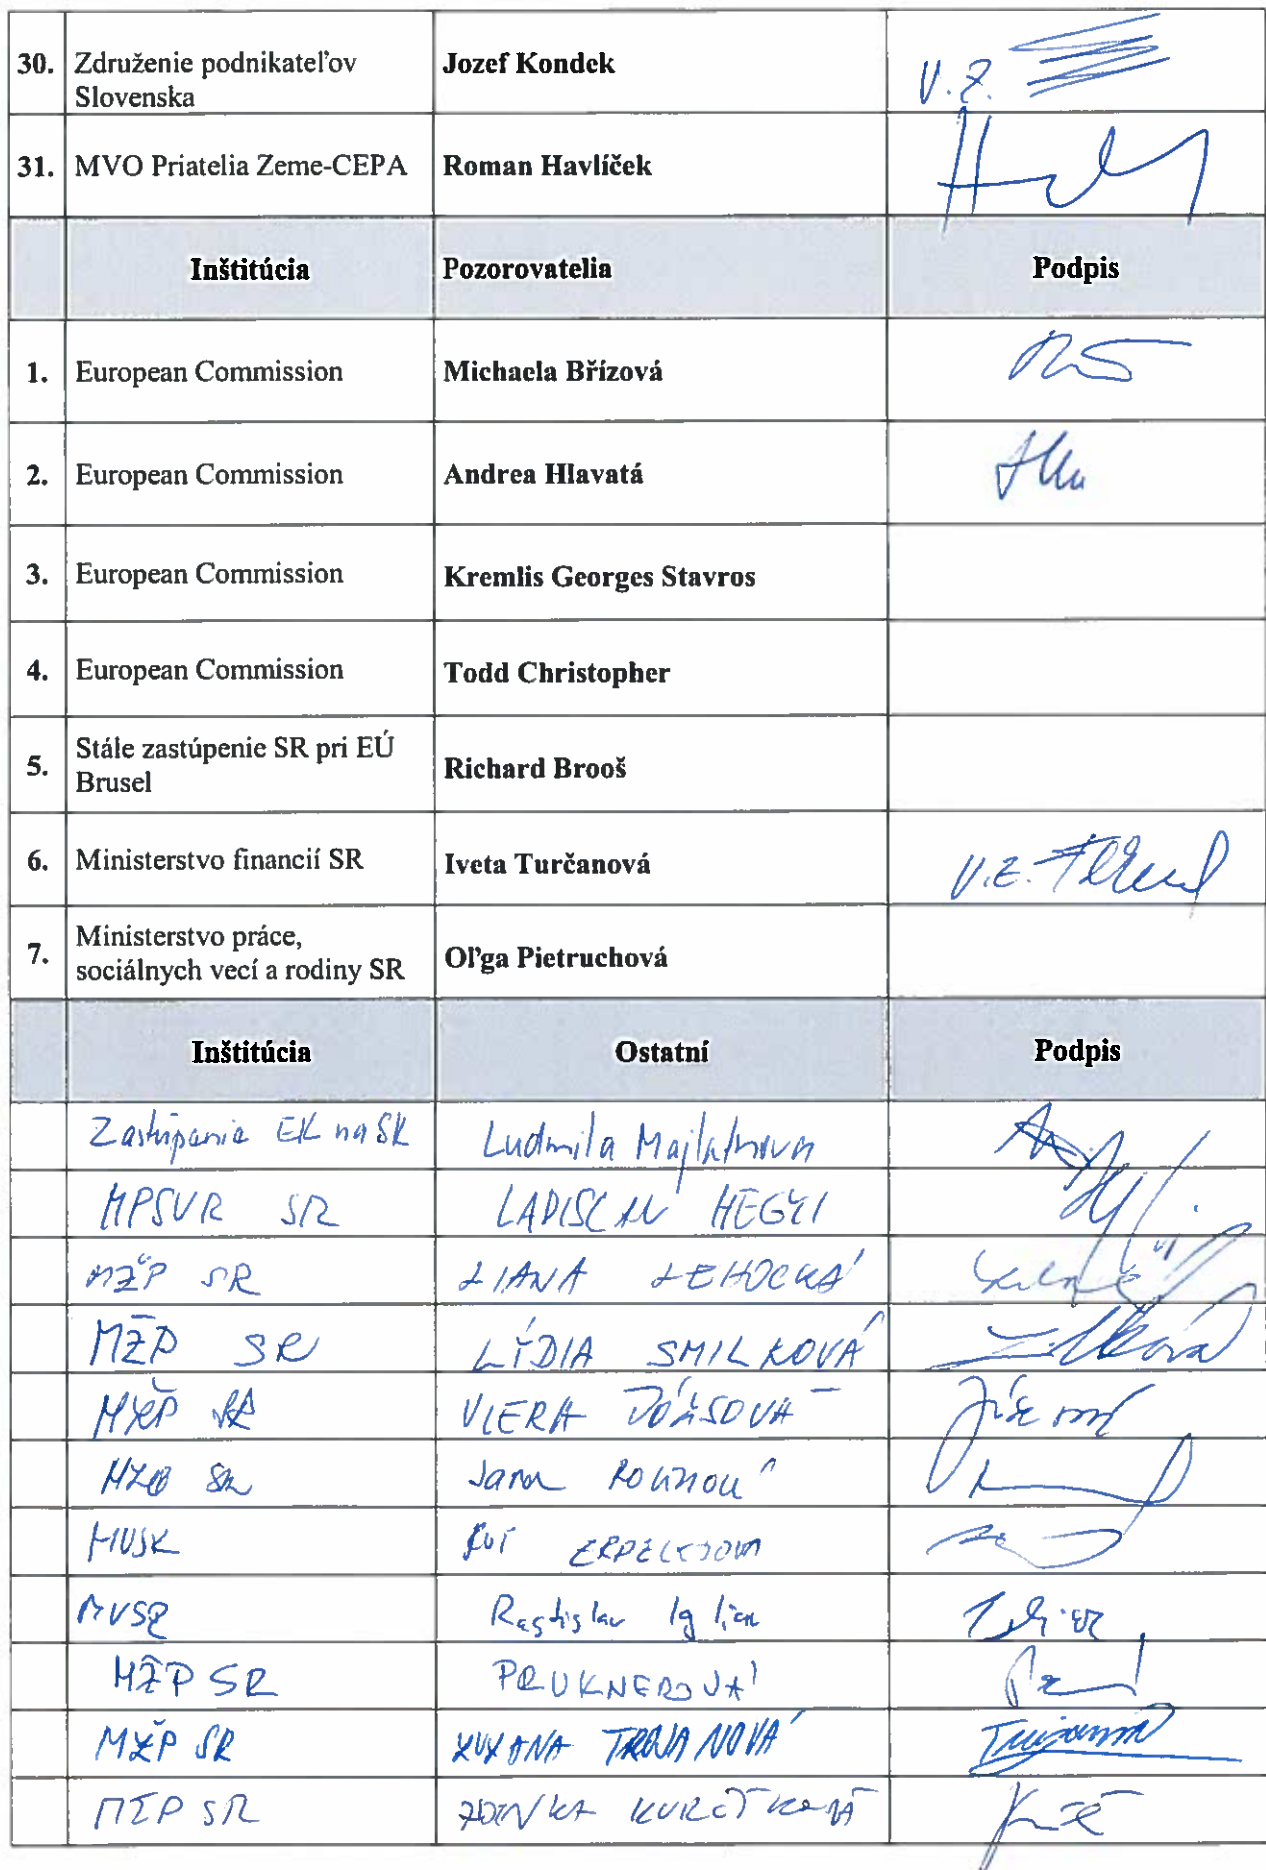 30. Združenie podnikateľov Slovenska Jozef Kondek V.Z.
31. MVO Priatelia Zeme-CEPA Roman Havlíček
Inštitúcia Pozorovatelia Podpis
1. European Commission Michaela Břízová
2. European Commission Andrea Hlavatá
3. European Commission Kremlis Georges Stavros
4. European Commission Todd Christopher
5. Stále zastúpenie SR pri EÚ Brusel Richard Brooš
6. Ministerstvo financií SR Iveta Turčanová V.Z.
7. Ministerstvo práce, sociálnych vecí a rodiny SR Oľga Pietruchová
Inštitúcia Ostatní Podpis
Zastúpenie EK na SK Ludmila
MPSVR SR LADISLAV HEGYI
MŽP SR LIANA LEHOCKÁ
MŽP SR LÝDIA SMILKOVÁ
MŽP SR VIERA
MŽP SR Jana
Rastislav
MŽP SR PRUKNEROVÁ
MŽP SR ZUZANA TROJANOVÁ
MŽP SR ZDENKA